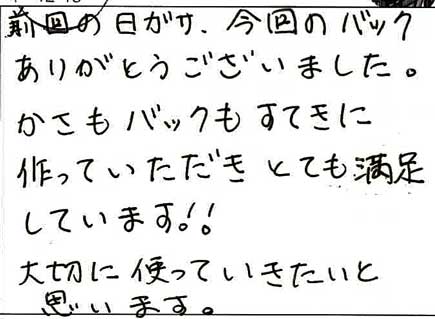 前回の日がサ、今回のバック
ありがとうございました。
かさもバックもすてきに
作っていただき とても満足
しています!!
大切に使っていきたいと
思います。